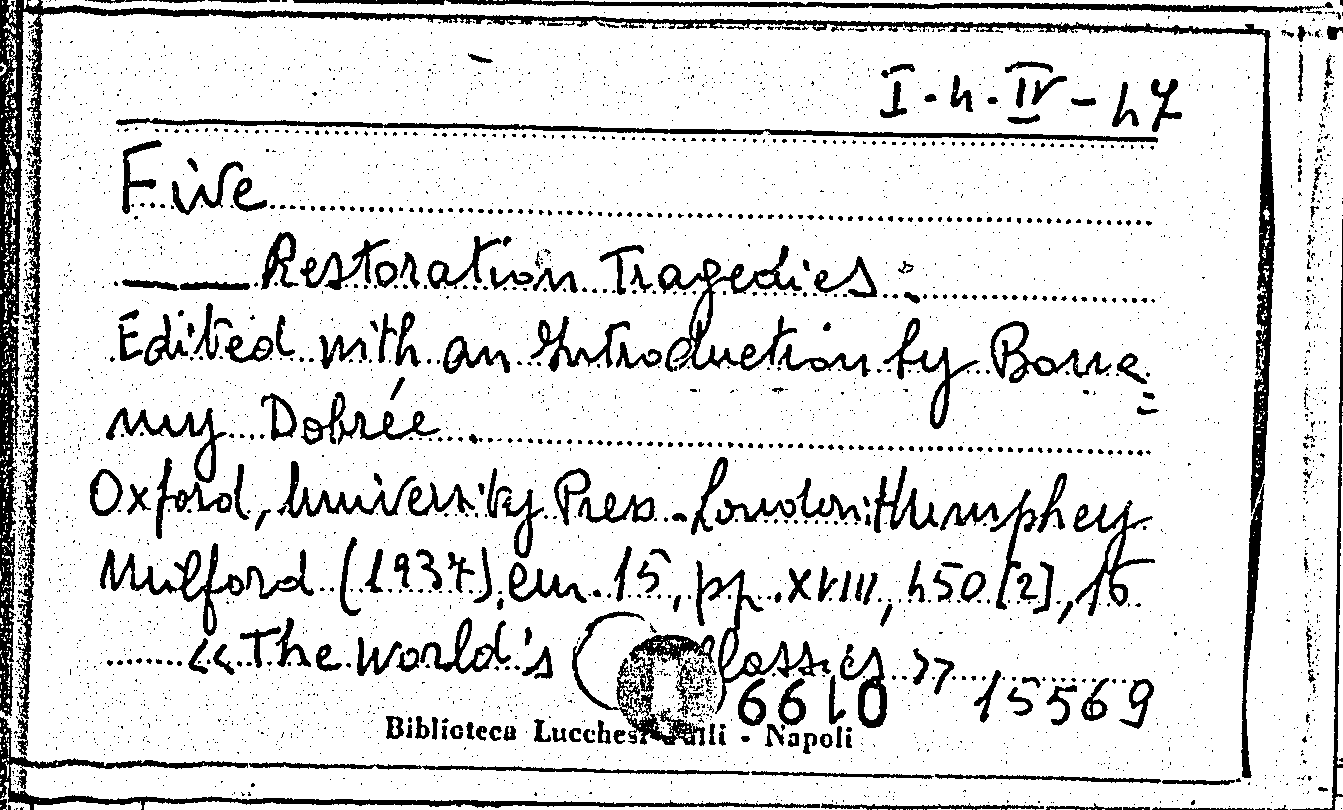 I.4.IV-47
Five
Restoration Tragedies:
Edited with an Introduction by Bona=
my Dobrée.
Oxford, University Press. London: Humphey
Milford (1937), cm. 15, pp. XVIII, 450 [2], 16
«The World's Classics» 15569
6610
Biblioteca Lucchesi-Palli - Napoli